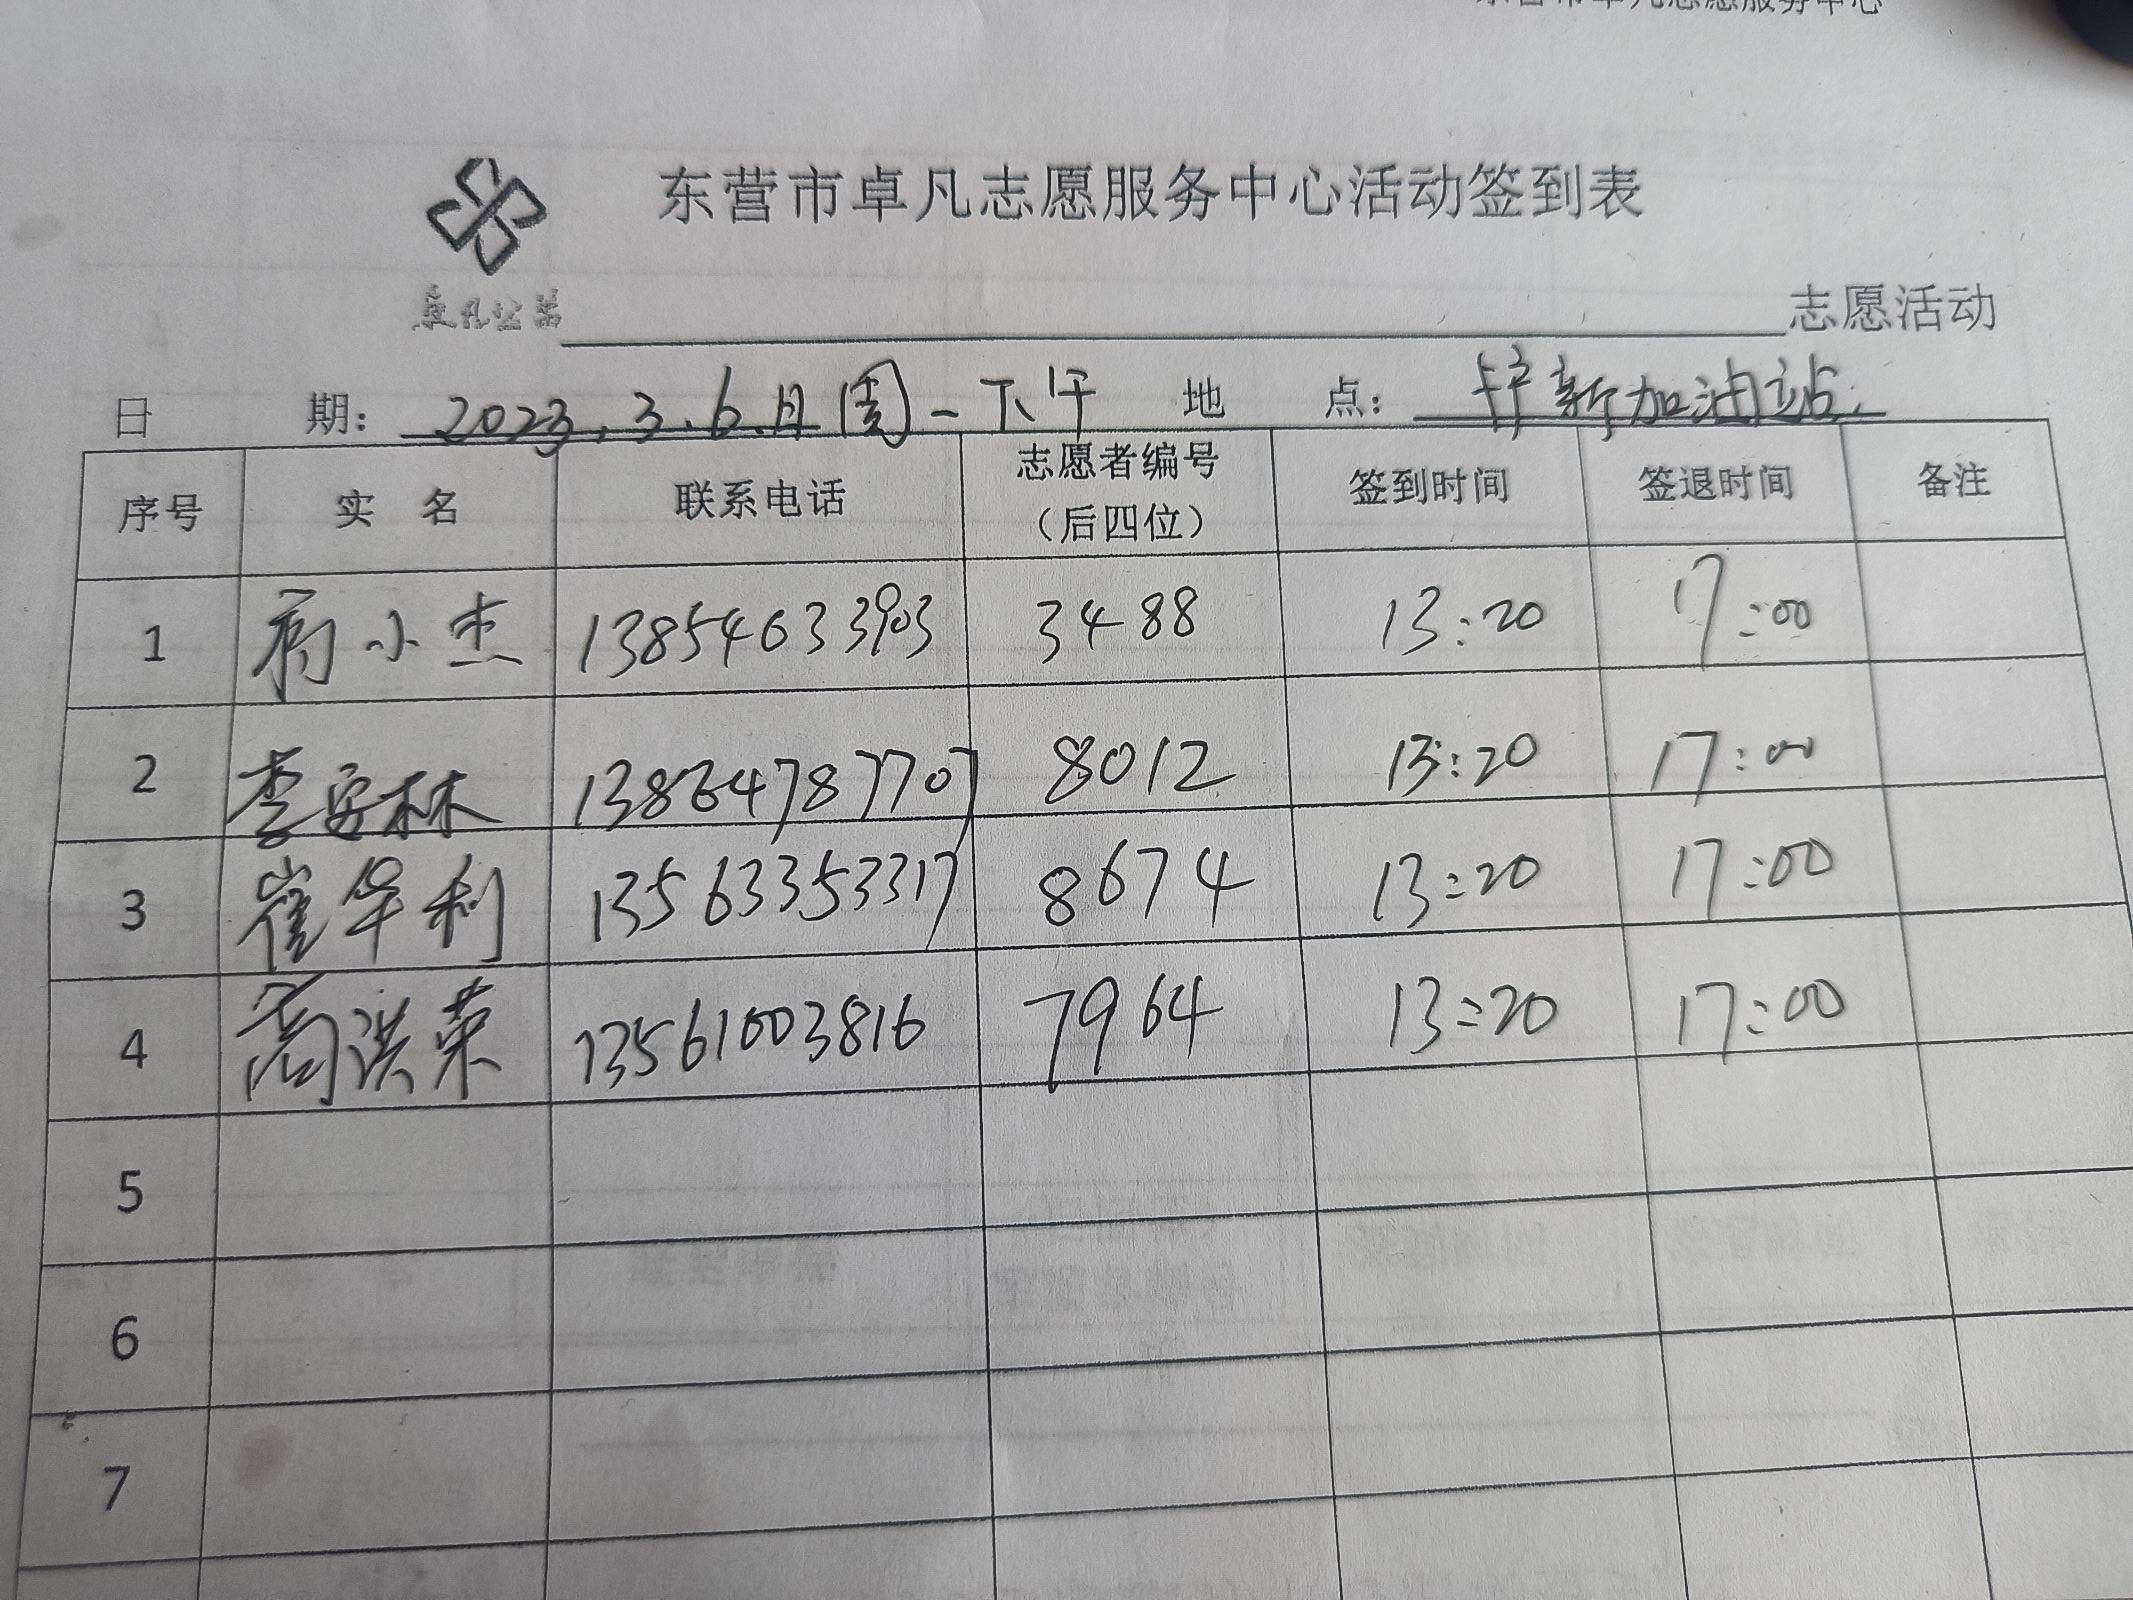 东营市卓凡志愿服务中心
东营市卓凡志愿服务中心活动签到表
卓凡公益
志愿活动
日 期: 2023.3.6.日周一下午 地 点: 新加油站.
序号 实 名 联系电话 志愿者编号（后四位） 签到时间 签退时间 备注
1 小杰 13854633903 3488 13:20 17:00
2 李安林 13864787707 8012 13:20 17:00
3 崔华利 13563353317 8674 13:20 17:00
4 高洪荣 13561003816 7964 13:20 17:00
5
6
7